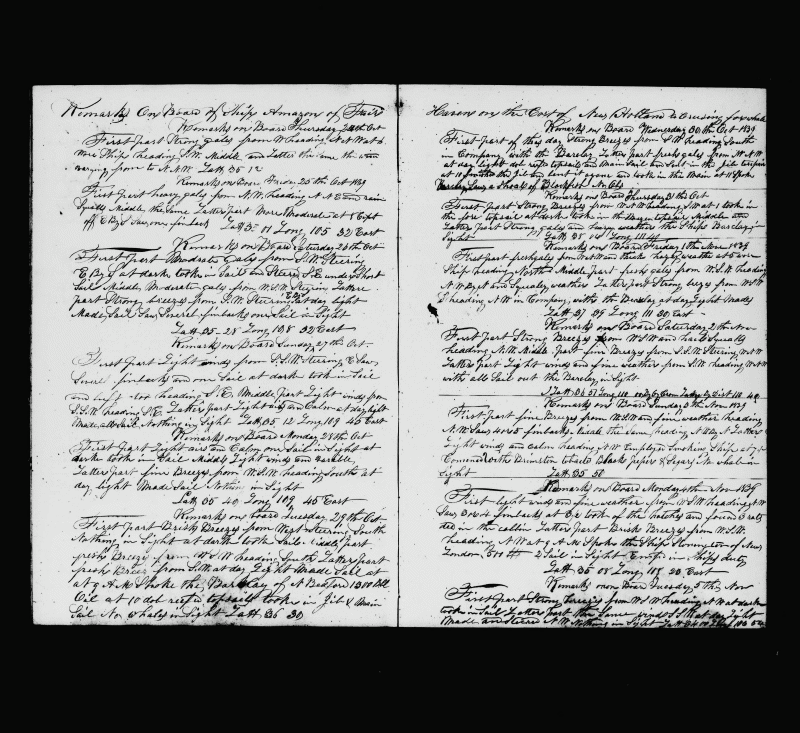 Remarks On Board of Ship Amazon of Fair
Remarks on Board Thursday 24th Oct
First part Strong gales from W heading N N W at 6
more Ships heading S.W. Middle and Latter the same the wind
varying from to N.N.W. Latt 36 12
Remarks on Board Friday 25th Oct 1839
First part heavy gales from N.W. heading N E and rain
Squalls Middle the Same Latter part More Moderate at 8 Sept
off E By S Saw one finback
Latt 35 11 Long 105 32 East
Remarks on Board Saturday 26th Oct
First part Moderate Gales from S.W. Steering
E By S at dark took in Sail and Steered S.E. under Short
Sail Middle Moderate gales from W.S.W. Steering Latter
part Strong breezes from S.W. Steering E By S at day light
Made Sail Saw Several finbacks one Sail in Sight
Latt 35 - 28 Long 108 32 East
Remarks on Board Sunday 27th Oct.
First part Light winds from S.S.W. Steering E Saw
Several finbacks and one Sail at dark took in Sail
and heading S.E. Middle part Light winds from
S.S.W. heading S.E. Latter part Light air and Calm at day light
Made all Sail Nothing in Sight Latt 35 12 Long 109 45 East
Remarks on Board Monday 28th Oct
First part Light air and Calm one Sail in Sight at
dark took in Sail Middle Light winds and variable
Latter part fine Breezes from W.S.W. heading South at
day light Made Sail Nothin in Sight
Latt 35 40 Long 109 45 East
Remarks on board Tuesday 29th Oct.
First part Brisk Breezes from West Steering South
Nothing in Sight at dark took Sail Middle part
fresh Breeze from W S W heading South Latter part
fresh Breez from S.W. at day Light Made Sail at
at 9 A.M. Spoke the Barclay of N Bedford 1300 bbl
Oil at 10 dol reefed topsails took in Jib & Main
Sail No whales in Sight Latt 36 30
Huson on the Cost of New Holland & Cruising for whale
Remarks on Board Wednesday 30th Oct 1839
First part of this day Strong Breezes from S.W. heading South
in Company with the Barclay Latter part fresh gales from W N W
at day light dol reef topsails and Main Sail and Set in the Jib
at 10 the Jib and bent it again and took in the Main at 11 Spoke
Barclay Saw a Shoal of Blackfish No Obs
Remarks on Board Thursday 31th Oct
First part Strong Breezes from W N W heading S W at 1 took in
the fore topsail at dark took in the Mizen topsail Middle and
Latter part Strong gales and heavy weather the Ship Barclay in
Sight Latt 38 18 Long 111 40
Remarks on Board Friday 1th Nov 1839
First part fresh gales from W N W and thick hazy weather at 5 wore
Ship heading North Middle part fresh gales from W.S.W. heading
N W By N and Squaley weather Latter part Strong bregs from W S W
heading N W in Company with the Barclay at day light Made
Latt 37 39 Long 111 30 East
Remarks on Board Saturday 2th Nov
First part Strong Breezes from W S W and hard Squally
heading N.W. Middle part fine Breezes from S.S.W. Steering W N W
Latter part Light winds and fine weather from S.W. heading W N W
with all Sail out the Barclay in Sight
Latt 36 57 Long 110
Remarks on Board Sunday 3th Nov 1839
First part fine Breezes from W.S.W. and fine weather heading
N.W. Saw 4 or 5 finbacks Middle the Same heading N W By N Latter
Light winds and calm heading N W Employed Smoking Ship at 7
Commenced with Brimston Charcoal Black peper & Segars No Whales in
Sight Latt 35 58
Remarks on Board Monday 4th Nov 1839
First light winds and fine weather from W.S.W. heading N W
Saw 3 or 4 finbacks at 3 took of the hatches and found 3 rats
ded in the cabbin Latter part Brisk Breezes from W.S.W.
heading N W at 9 A M Spoke the Ship Stonington of New
London 500 bbl 2 Sail in Sight Employ in Ships duty
Latt 35 08 Long 109 20 East
Remarks on Board Tuesday 5th Nov
First part Strong Breezes from W S W heading N W at dark
took in Sail Latter part the Same wind S.W. at day light
Made and Steered N.W. Nothing in Sight